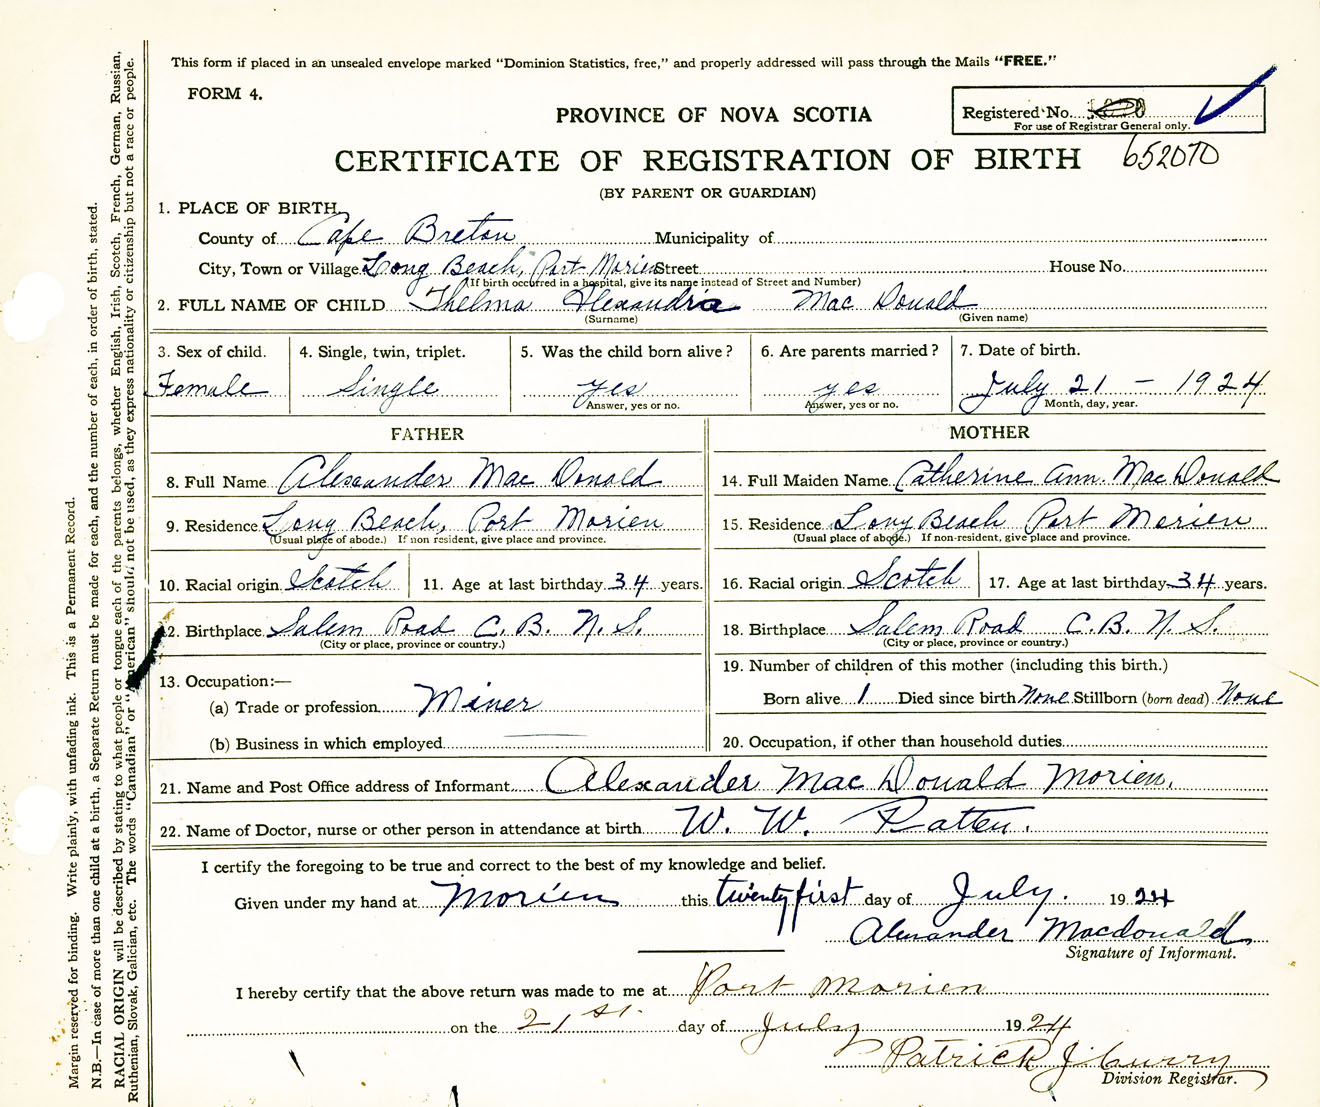 This form if placed in an unsealed envelope marked "Dominion Statistics, free," and properly addressed will pass through the Mails "FREE."
FORM 4.
PROVINCE OF NOVA SCOTIA
Registered No.
For use of Registrar General only.
CERTIFICATE OF REGISTRATION OF BIRTH
652070
(BY PARENT OR GUARDIAN)
1. PLACE OF BIRTH
County of Cape Breton Municipality of
City, Town or Village Long Beach, Port Morien Street House No.
(If birth occurred in a hospital, give its name instead of Street and Number)
2. FULL NAME OF CHILD Thelma Alexandria Mac Donald
(Surname) (Given name)
3. Sex of child. 4. Single, twin, triplet. 5. Was the child born alive? 6. Are parents married? 7. Date of birth.
Female Single yes yes July 21 - 1924
Answer, yes or no. Answer, yes or no. Month, day, year.
FATHER MOTHER
8. Full Name Alexander Mac Donald 14. Full Maiden Name Catherine Ann. Mac Donald
9. Residence Long Beach, Port Morien 15. Residence Long Beach Port Morien
(Usual place of abode.) If non resident, give place and province. (Usual place of abode.) If non-resident, give place and province.
10. Racial origin Scotch 11. Age at last birthday 34 years. 16. Racial origin Scotch 17. Age at last birthday 34 years.
12. Birthplace Salem Road C. B. N. S. 18. Birthplace Salem Road C. B. N. S.
(City or place, province or country.) (City or place, province or country.)
13. Occupation:— 19. Number of children of this mother (including this birth.)
(a) Trade or profession Miner Born alive 1 Died since birth None Stillborn (born dead) None
(b) Business in which employed 20. Occupation, if other than household duties
21. Name and Post Office address of Informant Alexander Mac Donald Morien.
22. Name of Doctor, nurse or other person in attendance at birth W. W. Patten.
I certify the foregoing to be true and correct to the best of my knowledge and belief.
Given under my hand at Morien this twenty first day of July. 1924
Alexander Macdonald
Signature of Informant.
I hereby certify that the above return was made to me at Port Morien
on the 21st. day of July 1924
Patrick J. Curry
Division Registrar.
Margin reserved for binding. Write plainly, with unfading ink. This is a Permanent Record.
N.B.—In case of more than one child at a birth, a Separate Return must be made for each, and the number of each, in order of birth, stated.
RACIAL ORIGIN will be described by stating to what people or tongue each of the parents belongs, whether English, Irish, Scotch, French, German, Russian,
Ruthenian, Slovak, Galician, etc. The words "Canadian" or "American" should not be used, as they express nationality or citizenship but not a race or people.